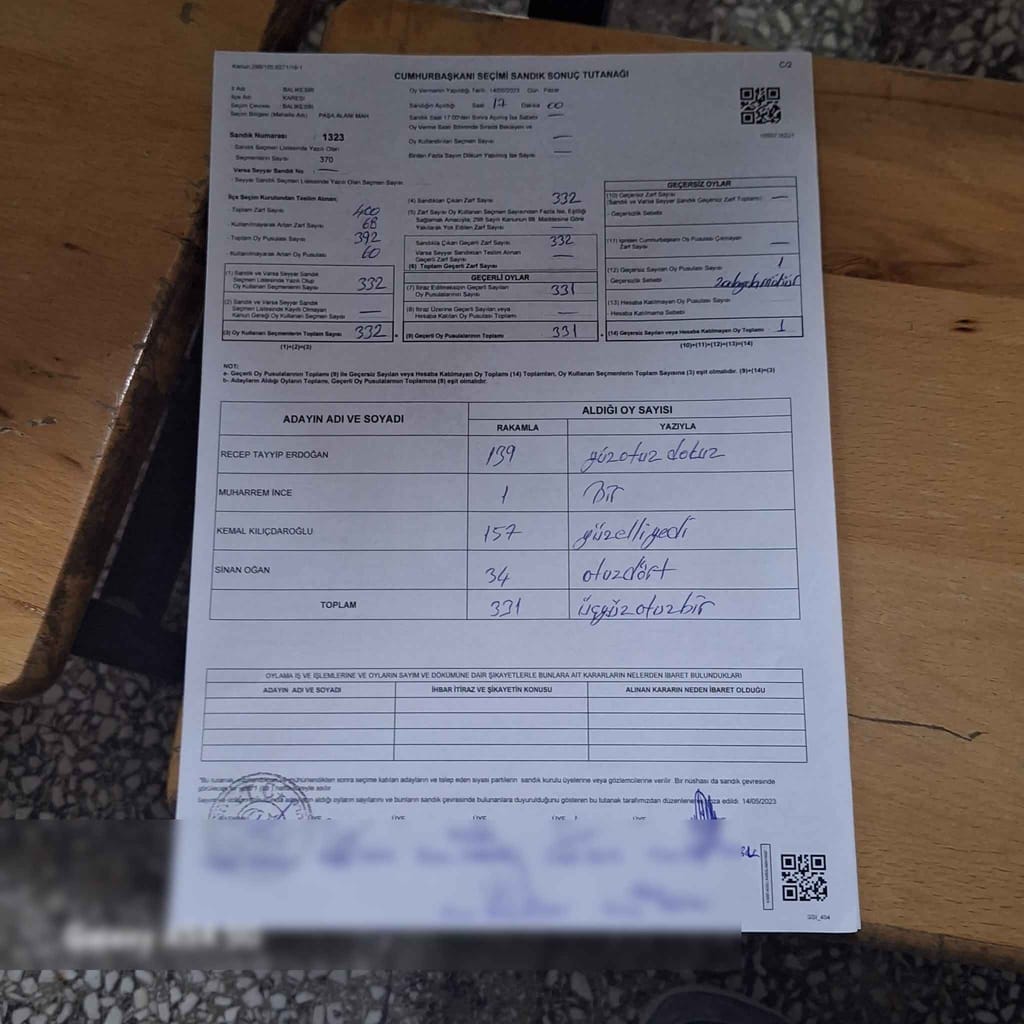 C/2
CUMHURBAŞKANI SEÇİMİ SANDIK SONUÇ TUTANAĞI
İl Adı : BALIKESİR
İlçe Adı : KARESİ
Seçim Çevresi : BALIKESİR
Seçim Bölgesi (Mahalle Adı) PAŞA ALANI MAH
Oy Vermenin Yapıldığı Tarih: 14/05/2023 Gün: Pazar
Sandığın Açıldığı Saat 17 Dakika 00
Sandık Saat 17:00'den Sonra Açılmış İse Sebebi —
Oy Verme Saati Bitiminde Sırada Bekleyen ve
Oy Kullandırılan Seçmen Sayısı —
Birden Fazla Sayım Döküm Yapılmış İse Sayısı —
Sandık Numarası : 1323
Sandık Seçmen Listesinde Yazılı Olan
Seçmenlerin Sayısı : 370
Varsa Seyyar Sandık No —
- Seyyar Sandık Seçmen Listesinde Yazılı Olan Seçmen Sayısı —
İlçe Seçim Kurulundan Teslim Alınan;
- Toplam Zarf Sayısı 400
- Kullanılmayarak Artan Zarf Sayısı 68
- Toplam Oy Pusulası Sayısı 392
- Kullanılmayarak Artan Oy Pusulası 60
(1) Sandık ve Varsa Seyyar Sandık
Seçmen Listesinde Yazılı Olup
Oy Kullanan Seçmenlerin Sayısı 332
(2) Sandık ve Varsa Seyyar Sandık
Seçmen Listesinde Kayıtlı Olmayan
Kanun Gereği Oy Kullanan Seçmenlerin Sayısı —
(3) Oy Kullanan Seçmenlerin Toplam Sayısı 332
(1)+(2)=(3)
(4) Sandıktan Çıkan Zarf Sayısı 332
(5) Zarf Sayısı Oy Kullanan Seçmen Sayısından Fazla İse, Eşitliği
Sağlamak Amacıyla; 298 Sayılı Kanunun 98. Maddesine Göre
Yakılarak Yok Edilen Zarf Sayısı —
Sandıkta Çıkan Geçerli Zarf Sayısı 332
Varsa Seyyar Sandıktan Teslim Alınan
Geçerli Zarf Sayısı —
(6) Toplam Geçerli Zarf Sayısı
GEÇERLİ OYLAR
(7) İtiraz Edilmeksizin Geçerli Sayılan
Oy Pusulalarının Sayısı 331
(8) İtiraz Üzerine Geçerli Sayılan veya
Hesaba Katılan Oy Pusulası Toplamı —
(9) Geçerli Oy Pusulalarının Toplamı 331
GEÇERSİZ OYLAR
(10) Geçersiz Zarf Sayısı
(Sandık ve Varsa Seyyar Sandık Geçersiz Zarf Toplamı) —
- Geçersizlik Sebebi
(11) İçinden Cumhurbaşkanı Oy Pusulası Çıkmayan
Zarf Sayısı —
(12) Geçersiz Sayılan Oy Pusulası Sayısı 1
Geçersizlik Sebebi
(13) Hesaba Katılmayan Oy Pusulası Sayısı
Hesaba Katılmama Sebebi
(14) Geçersiz Sayılan veya Hesaba Katılmayan Oy Toplamı 1
(10)+(11)+(12)+(13)=(14)
NOT:
a- Geçerli Oy Pusulalarının Toplamı (9) ile Geçersiz Sayılan veya Hesaba Katılmayan Oy Toplamı (14) Toplamları, Oy Kullanan Seçmenlerin Toplam Sayısına (3) eşit olmalıdır. (9)+(14)=(3)
b- Adayların Aldığı Oyların Toplamı, Geçerli Oy Pusulalarının Toplamına (9) eşit olmalıdır.
ADAYIN ADI VE SOYADI ALDIĞI OY SAYISI
RAKAMLA YAZIYLA
RECEP TAYYİP ERDOĞAN 139 yüzotuz dokuz
MUHARREM İNCE 1 Bir
KEMAL KILIÇDAROĞLU 157 yüzelliyedi
SİNAN OĞAN 34 otuzdört
TOPLAM 331 üçyüzotuzbir
OYLAMA İŞ VE İŞLEMLERİNE VE OYLARIN SAYIM VE DÖKÜMÜNE DAİR ŞİKAYETLERLE BUNLARA AİT KARARLARIN NELERDEN İBARET BULUNDUKLARI
ADAYIN ADI VE SOYADI İHBAR İTİRAZ VE ŞİKAYETİN KONUSU ALINAN KARARIN NEDEN İBARET OLDUĞU
"Bu tutanak, sonra seçime katılan adayların ve talep eden siyasi partilerin sandık kurulu üyelerine veya gözlemcilerine verilir. Bir nüshası da sandık çevresinde
aldığı oyların sayılarını ve bunların sandık çevresinde bulunanlara duyurulduğunu gösteren bu tutanak tarafımızdan imza edildi. 14/05/2023